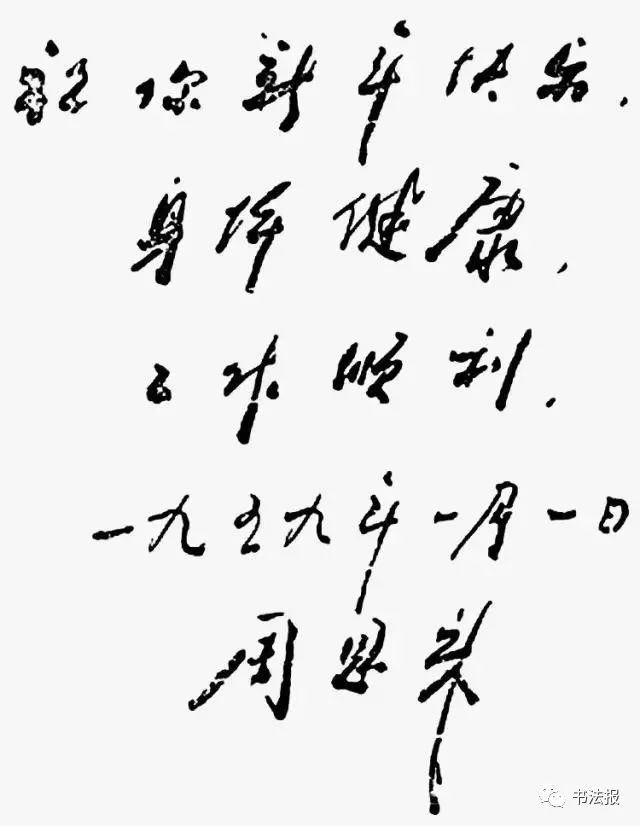 祝你新年快乐，
身体健康，
工作顺利。
一九五九年一月一日
周恩来
书法报